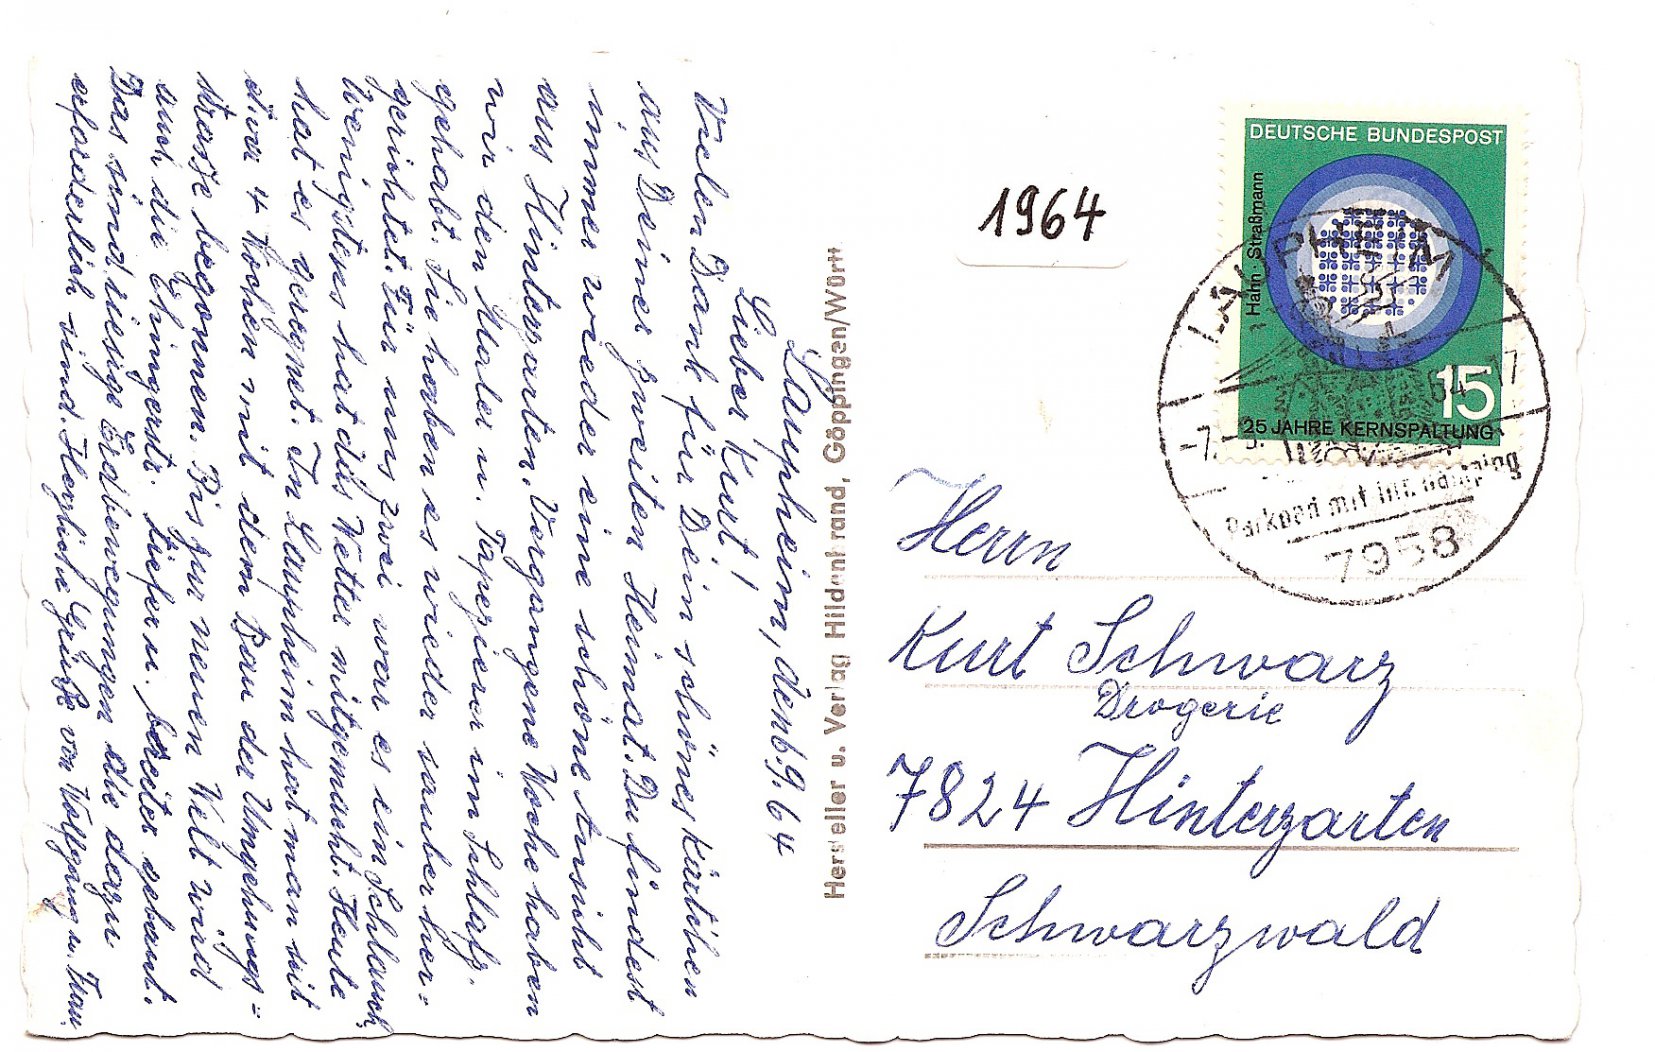 Laupheim, den 6.9.64
Lieber Kurt!
Vielen Dank für Dein schönes Kärtchen
aus Deiner zweiten Heimat. Du findest
immer wieder eine schöne Ansicht
aus Hinterzarten. Vergangene Woche haben
wir den Maler u. Tapezierer im Schlafz.
gehabt. Sie haben es wieder sauber her=
gerichtet. Für uns zwei war es ein Schlauch.
Wenigstens hat das Wetter mitgemacht. Heute
hat es geregnet. In Laupheim hat man seit
etwa 4 Wochen mit dem Bau der Umgehungs=
strasse begonnen. Bis zur neuen Welt wird
auch die Ehingerstr. tiefer u. breiter gebaut.
Das sind riesige Erdbewegungen die dazu
erforderlich sind. Herzliche Grüße von Wolfgang u. Frau.
Hersteller u. Verlag Hildenbrand, Göppingen/Württ
1964
DEUTSCHE BUNDESPOST
Hahn - Straßmann
15
25 JAHRE KERNSPALTUNG
LAUPHEIM
-7.-9. 64-17
Parkbad mit int. Camping
7958
Herrn
Kurt Schwarz
Drogerie
7824 Hinterzarten
Schwarzwald